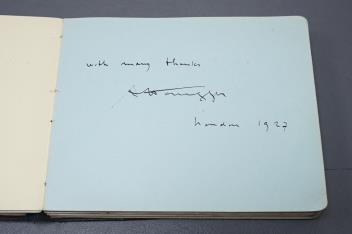 with many thanks
London 1927